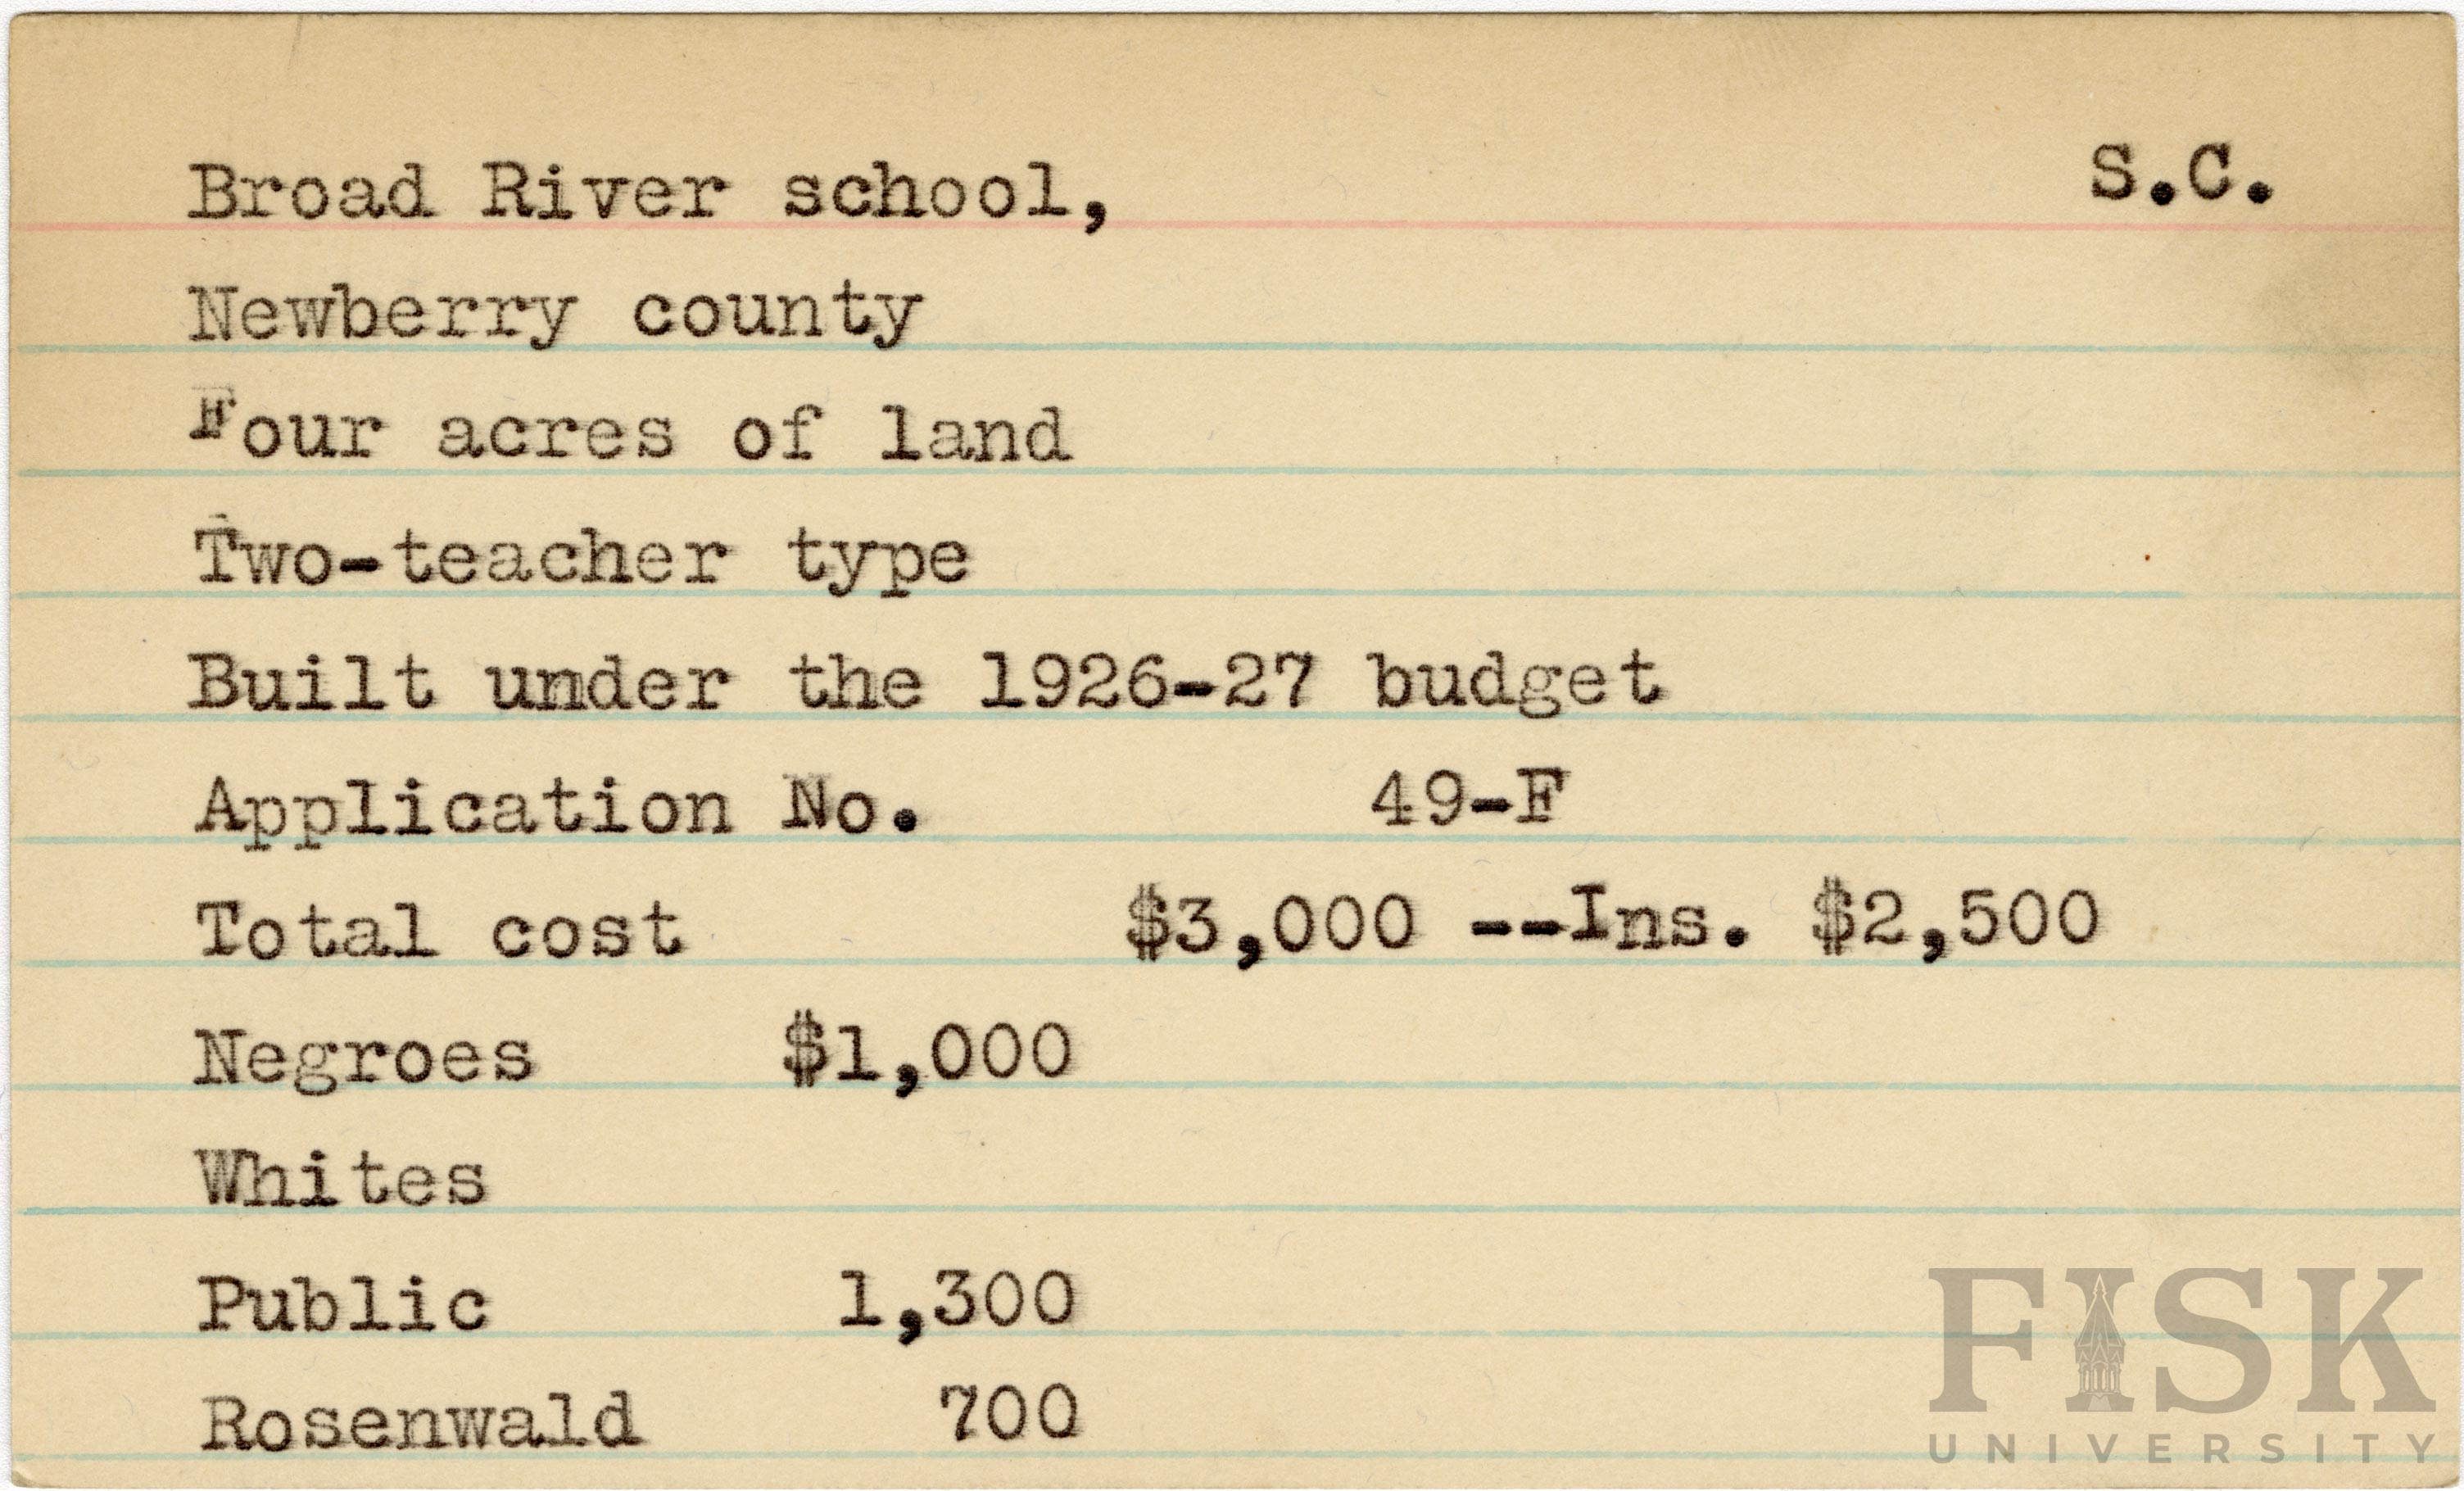 Broad River school, S.C.
Newberry county
Four acres of land
Two-teacher type
Built under the 1926-27 budget
Application No. 49-F
Total cost $3,000 --Ins. $2,500
Negroes $1,000
Whites
Public 1,300
Rosenwald 700
FISK
UNIVERSITY